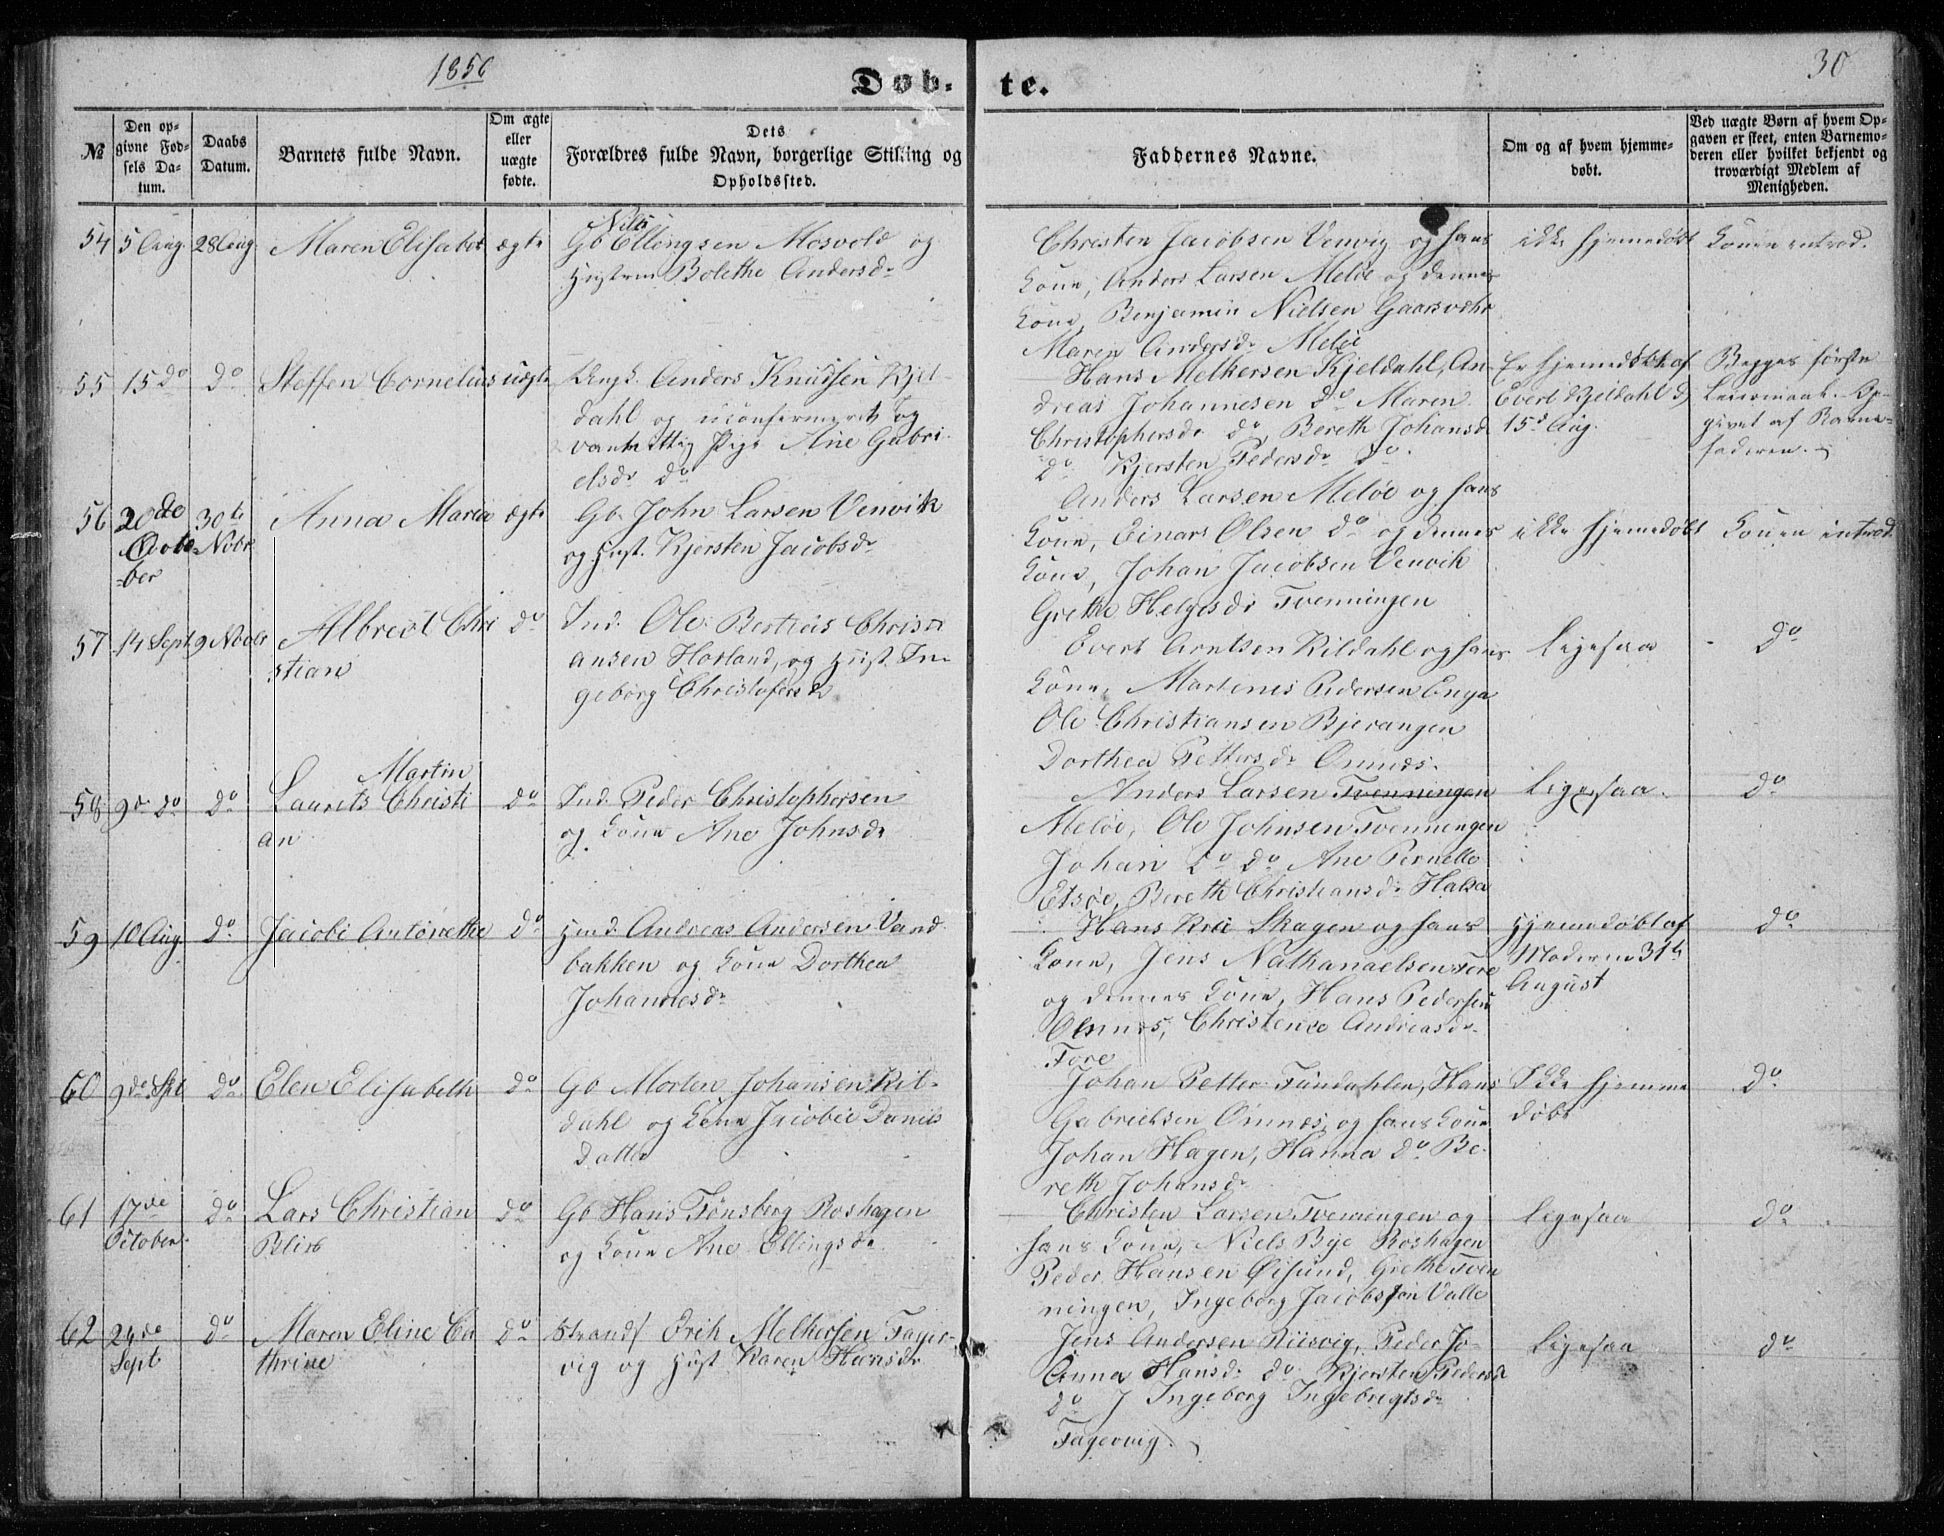 1856
Døb-
te.
30
№
Den op-
givne Fød-
sels Da-
tum.
Daabs
Datum.
Barnets fulde Navn.
Om ægte
eller
uægte
fødte.
Dets
Forældres fulde Navn, borgerlige Stilling og
Opholdssted.
Faddernes Navne.
Om og af hvem hjemme-
døbt.
Ved uægte Børn af hvem Op-
gaven er skeet, enten Barnemo-
deren eller hvilket bekjendt og
troværdigt Medlem af
Menigheden.
54 5 Aug 28 Aug Maren Elisabet ægte
Nils
Gb Ellingsen Mosvold og
Hustru Bolethe Andersdr
Christen Jacobsen Venvig og hans
Kone, Anders Larsen Meløe og dennes
Kone, Benjamin Nielsen Gaarsvær
Maren Andersdr Meløe
ikke hjemmedøbt
Konen introd.
55 15 do do Steffen Cornelius uægte
Ungk. Anders Knudsen Kjel-
dahl og uconfirmeret og
vanvittig Pige Ane Gabri-
elsdr do
Hans Melkersen Kjeldahl, An-
dreas Johannesen do Maren
Christophersdr do, Bereth Johansdr
do Kjersten Pedersdr do.
Er hjemmedøbt af
Evert Kjeldahl d
15d Aug.
Begges første
Leiermaal. Op-
givet af Barne-
faderen.
56 20de
Octo-
ber
30te
Nobr
Anna Maria ægte
Gb. John Larsen Venvik
og Hust. Kjersten Jacobsdr
Anders Larsen Meløe og hans
Kone, Einars Olsen do og dennes
Kone, Johan Jacobsen Venvik
Grethe Helgesdr Tvenningen
ikke hjemmedøbt
Konen introd.
57 14 Sept 9 Nobr Albrect Chri
stian
do
Ind. Ole Bertius Christi
ansen Horland, og Hust. In-
geborg Christofersdr
Evert Arntsen Kildahl og hans
Kone, Martenis Pedersen Enga
Ole Christiansen Bjerangen
Dorthea Pettersdr Ornnes.
Ligesaa
do
58 9de do do
Martin
Laurits Christi
an
do
Ind. Peder Christophersen
og Kone Ane Johnsdr
Anders Larsen Tvenningen
Meløe, Ole Johnsen Tvenningen
Johan do do Ane Pernelle
Etsøe, Bereth Christiansdr Halsa
Ligesaa.
do
59 10 Aug do Jacobe Antonethe do
Hmd. Andreas Andersen Vand
bakken og Kone Dorthea
Johannesdr
Hans Krei Skagen og hans
Kone, Jens Nathanaelsen Fore
og dennes Kone, Hans Pedersen
Ornnes, Christence Andreasdr
Fore
Hjemmedøbt af
Moderen 31te
August
do
60 9de Spt do Elen Elisabeth do
Gb Morten Johansen Kil-
dahl og Kone Jacobee Daniels
datter
Johan Petter Fondahlen, Hans
Gabrielsen Ornnes, og hans Kone
Johan Hagen, Hanna do Be-
reth Johansdr
Ikke hjemme
døbt
do
61 17de
October
do Lars Christian
do
Gb Hans Tønsberg Roshagen
og Kone Ane Ellingsdr
Christen Larsen Tvenningen og
hans Kone, Niels Bye Roshagen
Peder Hansen Øisund, Grethe Tven
ningen, Ingeborg Jacobsen Valle
Ligesaa
do
62 24de
Sept
do Maren Eline Ca
thrine
do
Strands. Erik Melkersen Fager-
vig og Hust Karen Hansdr
Jens Andersen Riisvig, Peder Jo-
Anna Hansdr do Kjersten Pedersdr
do J Ingeborg Ingebrigtsdr
Fagervig.
Ligesaa
do